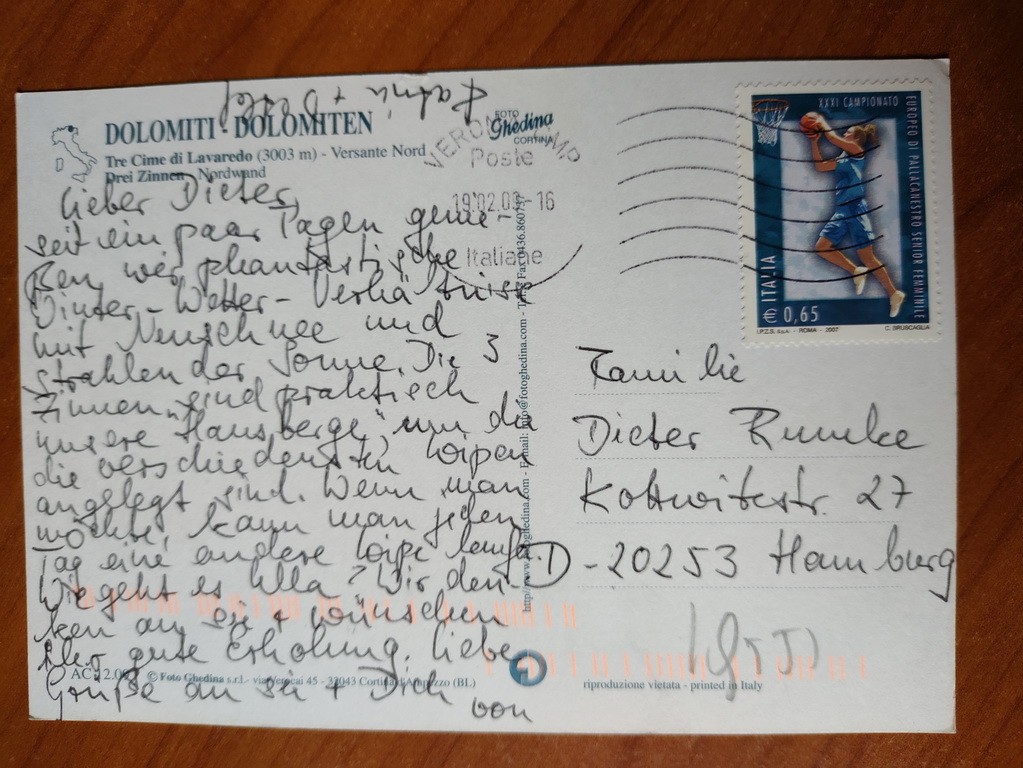 DOLOMITI - DOLOMITEN
Tre Cime di Lavaredo (3003 m) - Versante Nord
Drei Zinnen - Nordwand
FOTO
Ghedina
CORTINA
Lieber Dieter,
seit ein paar Tagen genie-
ßen wir phantastische
Winter-Wetter-Verhältnisse
mit Neuschnee und
Strahlen der Sonne. Die 3
Zinnen sind praktisch
unsere "Hausberge", um die
die verschiedensten Loipen
angelegt sind. Wenn man
möchte, kann man jeden
Tag eine andere Loipe laufen.
Wie geht es Ulla? Wir den-
ken an sie + wünschen
ihr gute Erholung. Liebe
Grüße an sie + Dich
von
+
Poste
19.02.09-16
Italiane
http//www.fotoghedina.com - E-mail: info@fotoghedina.com - Tel. e Fax 0436.860797
XXXI CAMPIONATO
EUROPEO DI PALLACANESTRO SENIOR FEMMINILE
ITALIA
€ 0,65
I.P.Z.S. S.p.A. - ROMA - 2007
C. BRUSCAGLIA
Familie
Dieter
27
D-20253 Hamburg
© Foto Ghedina s.r.l.- via Verocai 45 - 32043 Cortina d'Ampezzo (BL)
riproduzione vietata - printed in Italy